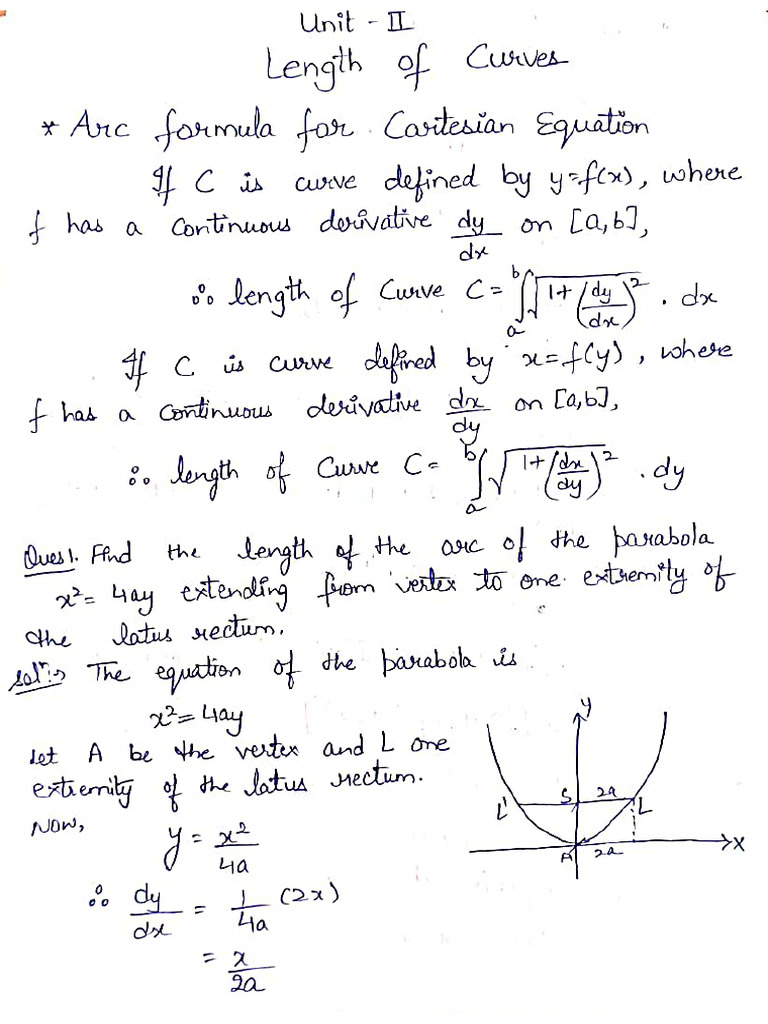 Unit - II
Length of Curves
* Arc formula for Cartesian Equation
If C is curve defined by y=f(x), where
f has a continuous derivative dy/dx on [a,b],
∴ length of Curve C = ∫_a^b √(1+(dy/dx)²) . dx
If C is curve defined by x=f(y), where
f has a continuous derivative dx/dy on [a,b],
∴ length of Curve C = ∫_a^b √(1+(dx/dy)²) . dy
Ques 1. Find the length of the arc of the parabola
x² = 4ay extending from vertex to one extremity of
the latus rectum.
Solⁿ:→ The equation of the parabola is
x² = 4ay
Let A be the vertex and L one
extremity of the latus rectum.
Now,
y = x²/4a
∴ dy/dx = 1/4a (2x)
= x/2a
y
S 2a
L' L
A 2a X